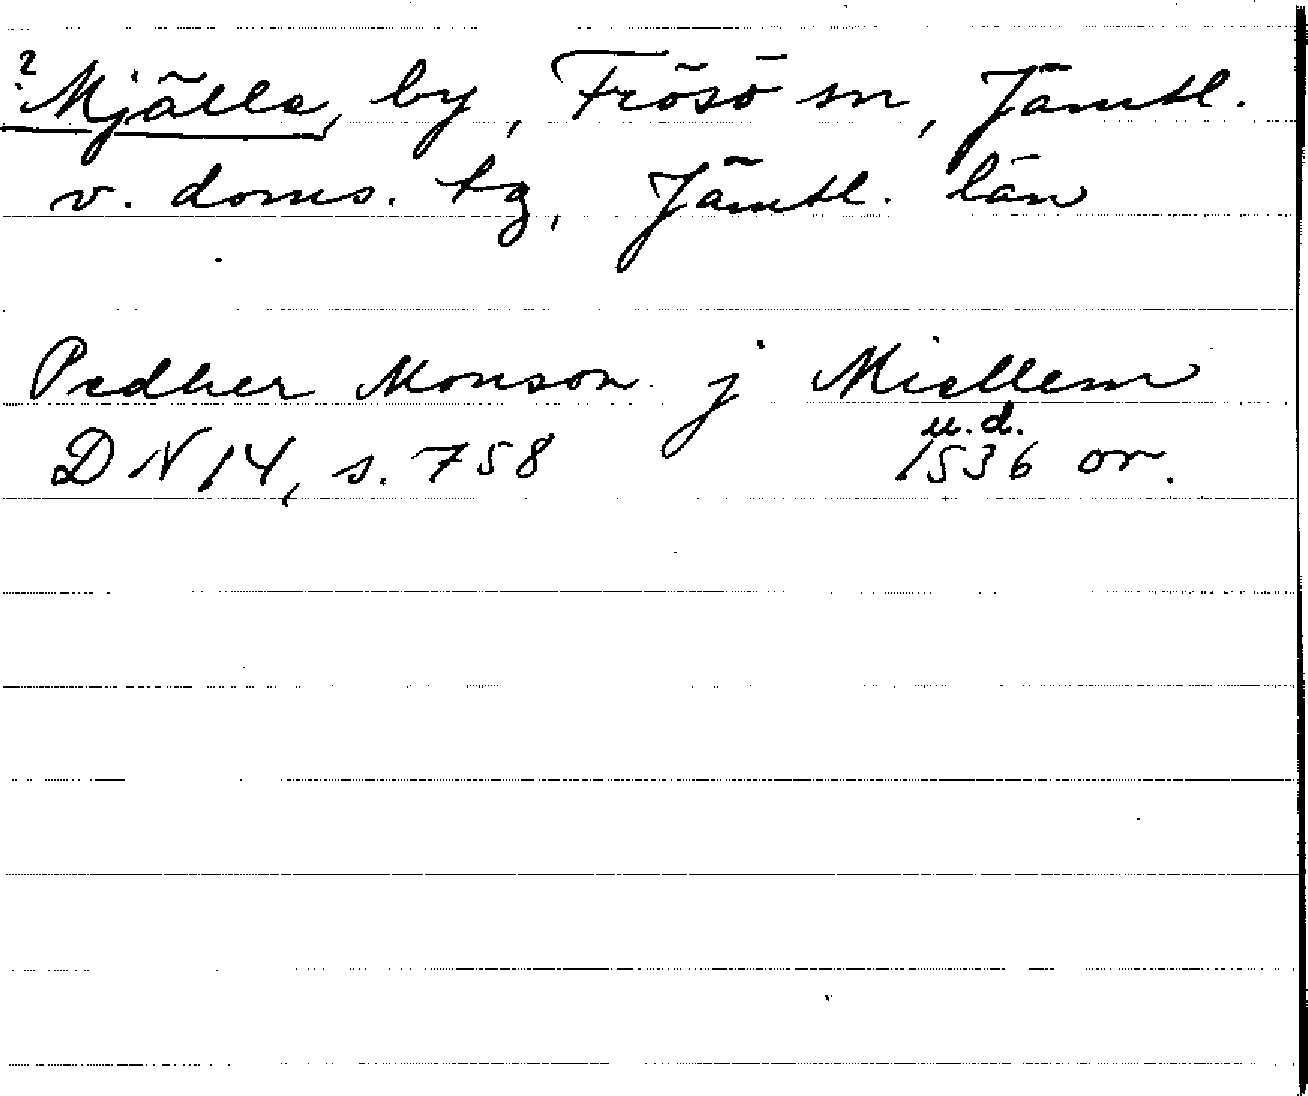 ? Mjälle, by, Frösö sn, Jämtl.
v. doms. tg, Jämtl. län
Pedher Monson j Miellem
u.d.
DN 14, s. 758 1536 or.